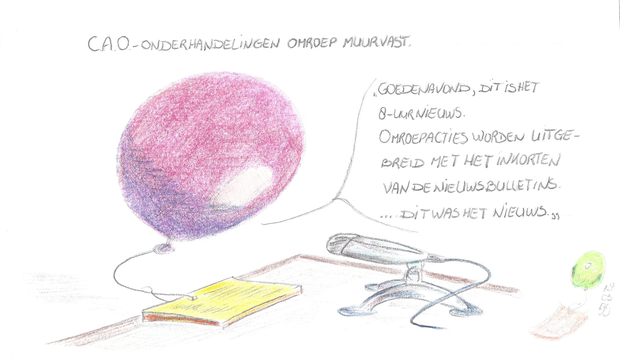 C.A.O.-ONDERHANDELINGEN OMROEP MUURVAST.
„GOEDENAVOND, DIT IS HET
8-UURNIEUWS.
OMROEPACTIES WORDEN UITGE-
BREID MET HET INKORTEN
VAN DE NIEUWSBULLETINS.
.... DIT WAS HET NIEUWS.„